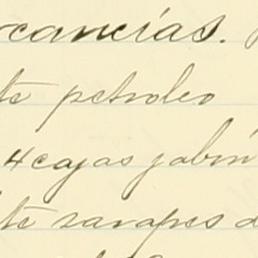 rcancías.
te petroleo
4 cajas jabón
te sarapes d